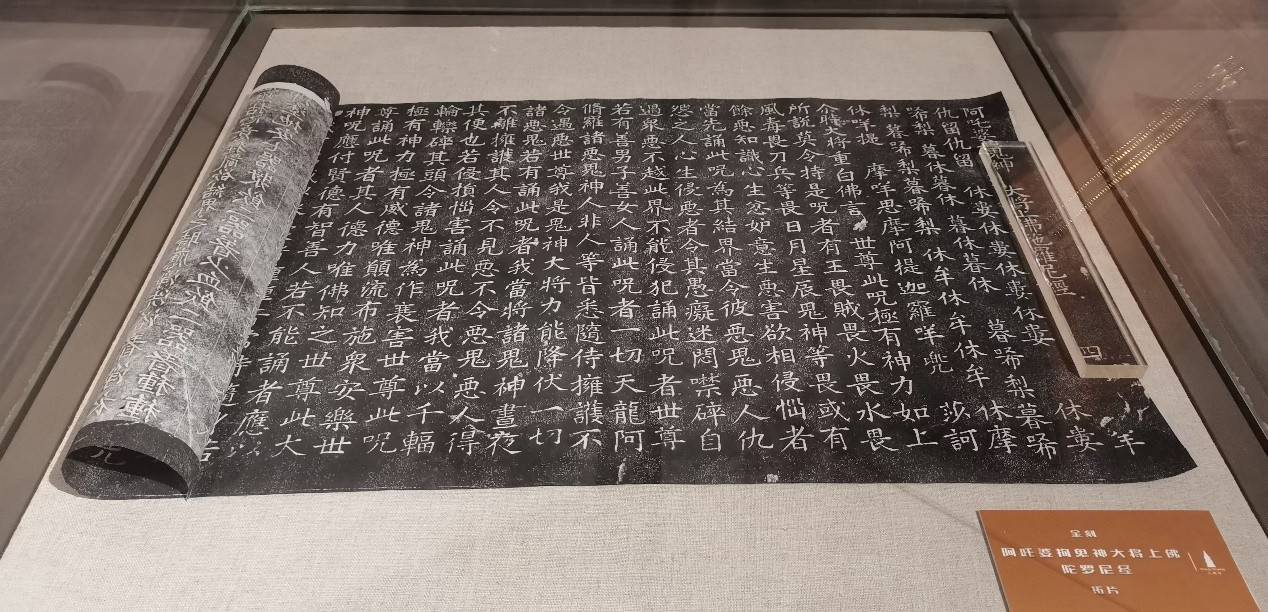 阿吒婆拘鬼神大将 陀羅尼經 四
仇留仇留 休婁休婁休婁休婁 休婁
唏梨 暮休暮休 暮休暮休 暮唏梨暮唏
梨 暮唏梨暮唏梨 休牟休牟休牟 休摩
休牟提 摩咩思摩阿提迦羅咩兜 莎訶
尒時大将重白佛言 世尊此呪極有神力如上
所說莫令持是呪者有王畏賊畏火畏水畏
風毒畏刀兵等畏日月星辰鬼神等畏或有
餘惡知識心生忿妒意生惡害欲相侵惱者
當先誦此呪為其結界當令彼惡鬼惡人仇
怨之人心生侵惡者令其愚癡迷悶噤碎自
過衆惡不越此界不能侵犯誦此呪者世尊
若有善男子善女人誦此呪者一切天龍阿
脩羅諸惡鬼神人非人等皆悉隨侍擁護不
令遇惡世尊我是鬼神大将力能降伏一切
諸惡鬼若有誦此呪者我當将諸鬼神晝夜
不離擁護其人令不見惡不令惡鬼惡人得
其便也若侵損惱害誦此呪者我當以千輻
輪轢碎其頭令諸鬼神為作衰害世尊此呪
極有神力極有威德唯願流布施衆安樂世
尊誦此呪者其人德力唯佛知之世尊此大
神呪應付賢德有智善人若不能誦者應以
全刻
阿吒婆拘鬼神大将上佛
陀罗尼经
16片